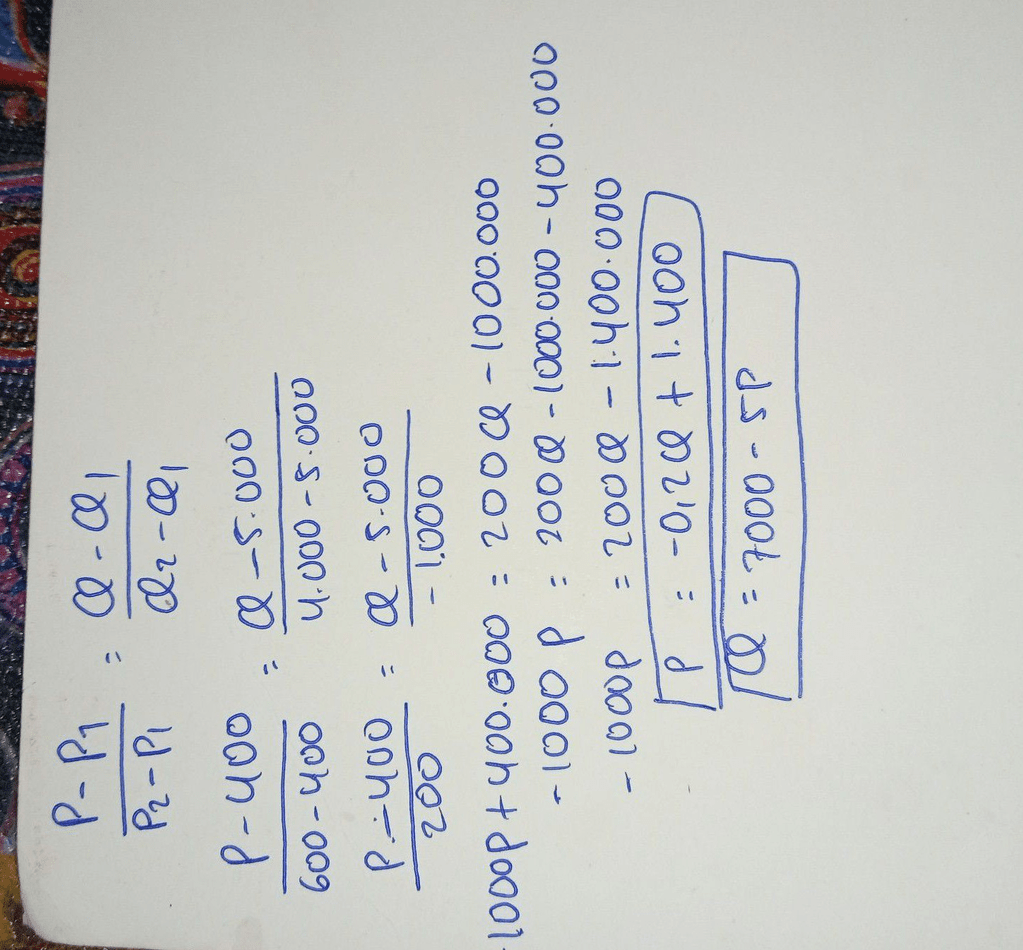 P - P1 / P2 - P1 = Q - Q1 / Q2 - Q1
P - 400 / 600 - 400 = Q - 5.000 / 4.000 - 5.000
P - 400 / 200 = Q - 5.000 / - 1.000
- 1000P + 400.000 = 200Q - 1000.000
- 1000 P = 200Q - 1000.000 - 400.000
- 1000P = 200Q - 1.400.000
P = - 0,2Q + 1.400
Q = 7000 - 5P